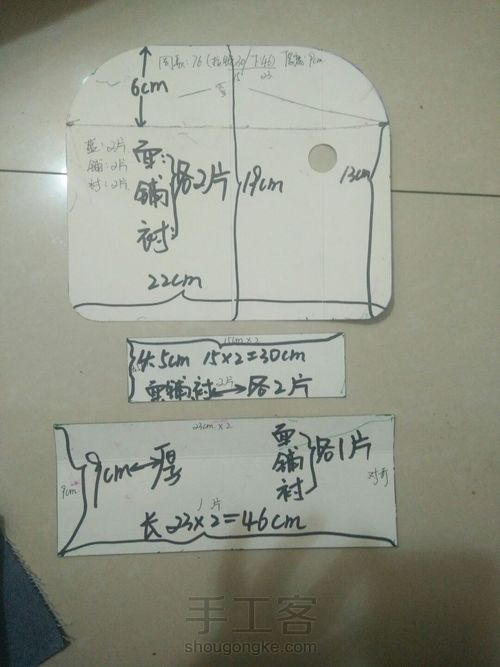 周长:76(拉链30/下46) 厚度:9cm
15 23
6cm
面:2片
铺:2片
衬:2片
面:
铺
衬:
各2片
19cm
13cm
22cm
15cm×2
4.5cm 15×2=30cm
2片
面铺衬↔各2片
23cm×2
9cm
9cm↔厚
面
铺
衬
各1片
对折
1片
长 23×2=46cm
手工客
shougongke.com